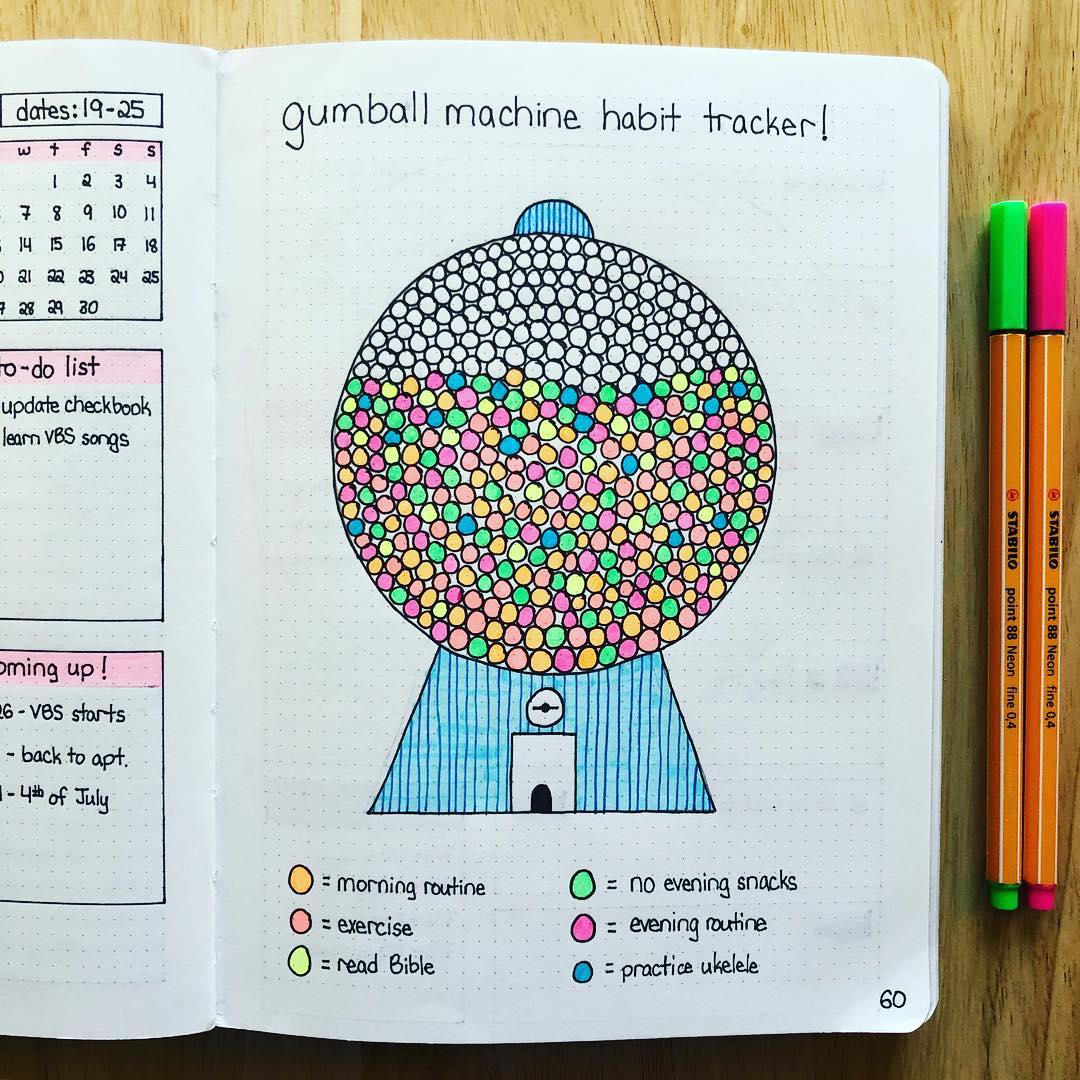 dates: 19-25
w t f s s
1 2 3 4
7 8 9 10 11
14 15 16 17 18
21 22 23 24 25
28 29 30
to-do list
update checkbook
learn VBS songs
coming up!
26 - VBS starts
- back to apt.
- 4th of July
gumball machine habit tracker!
= morning routine
= exercise
= read Bible
= no evening snacks
= evening routine
= practice ukelele
60
STABILO point 88 Neon fine 0,4
STABILO point 88 Neon fine 0,4